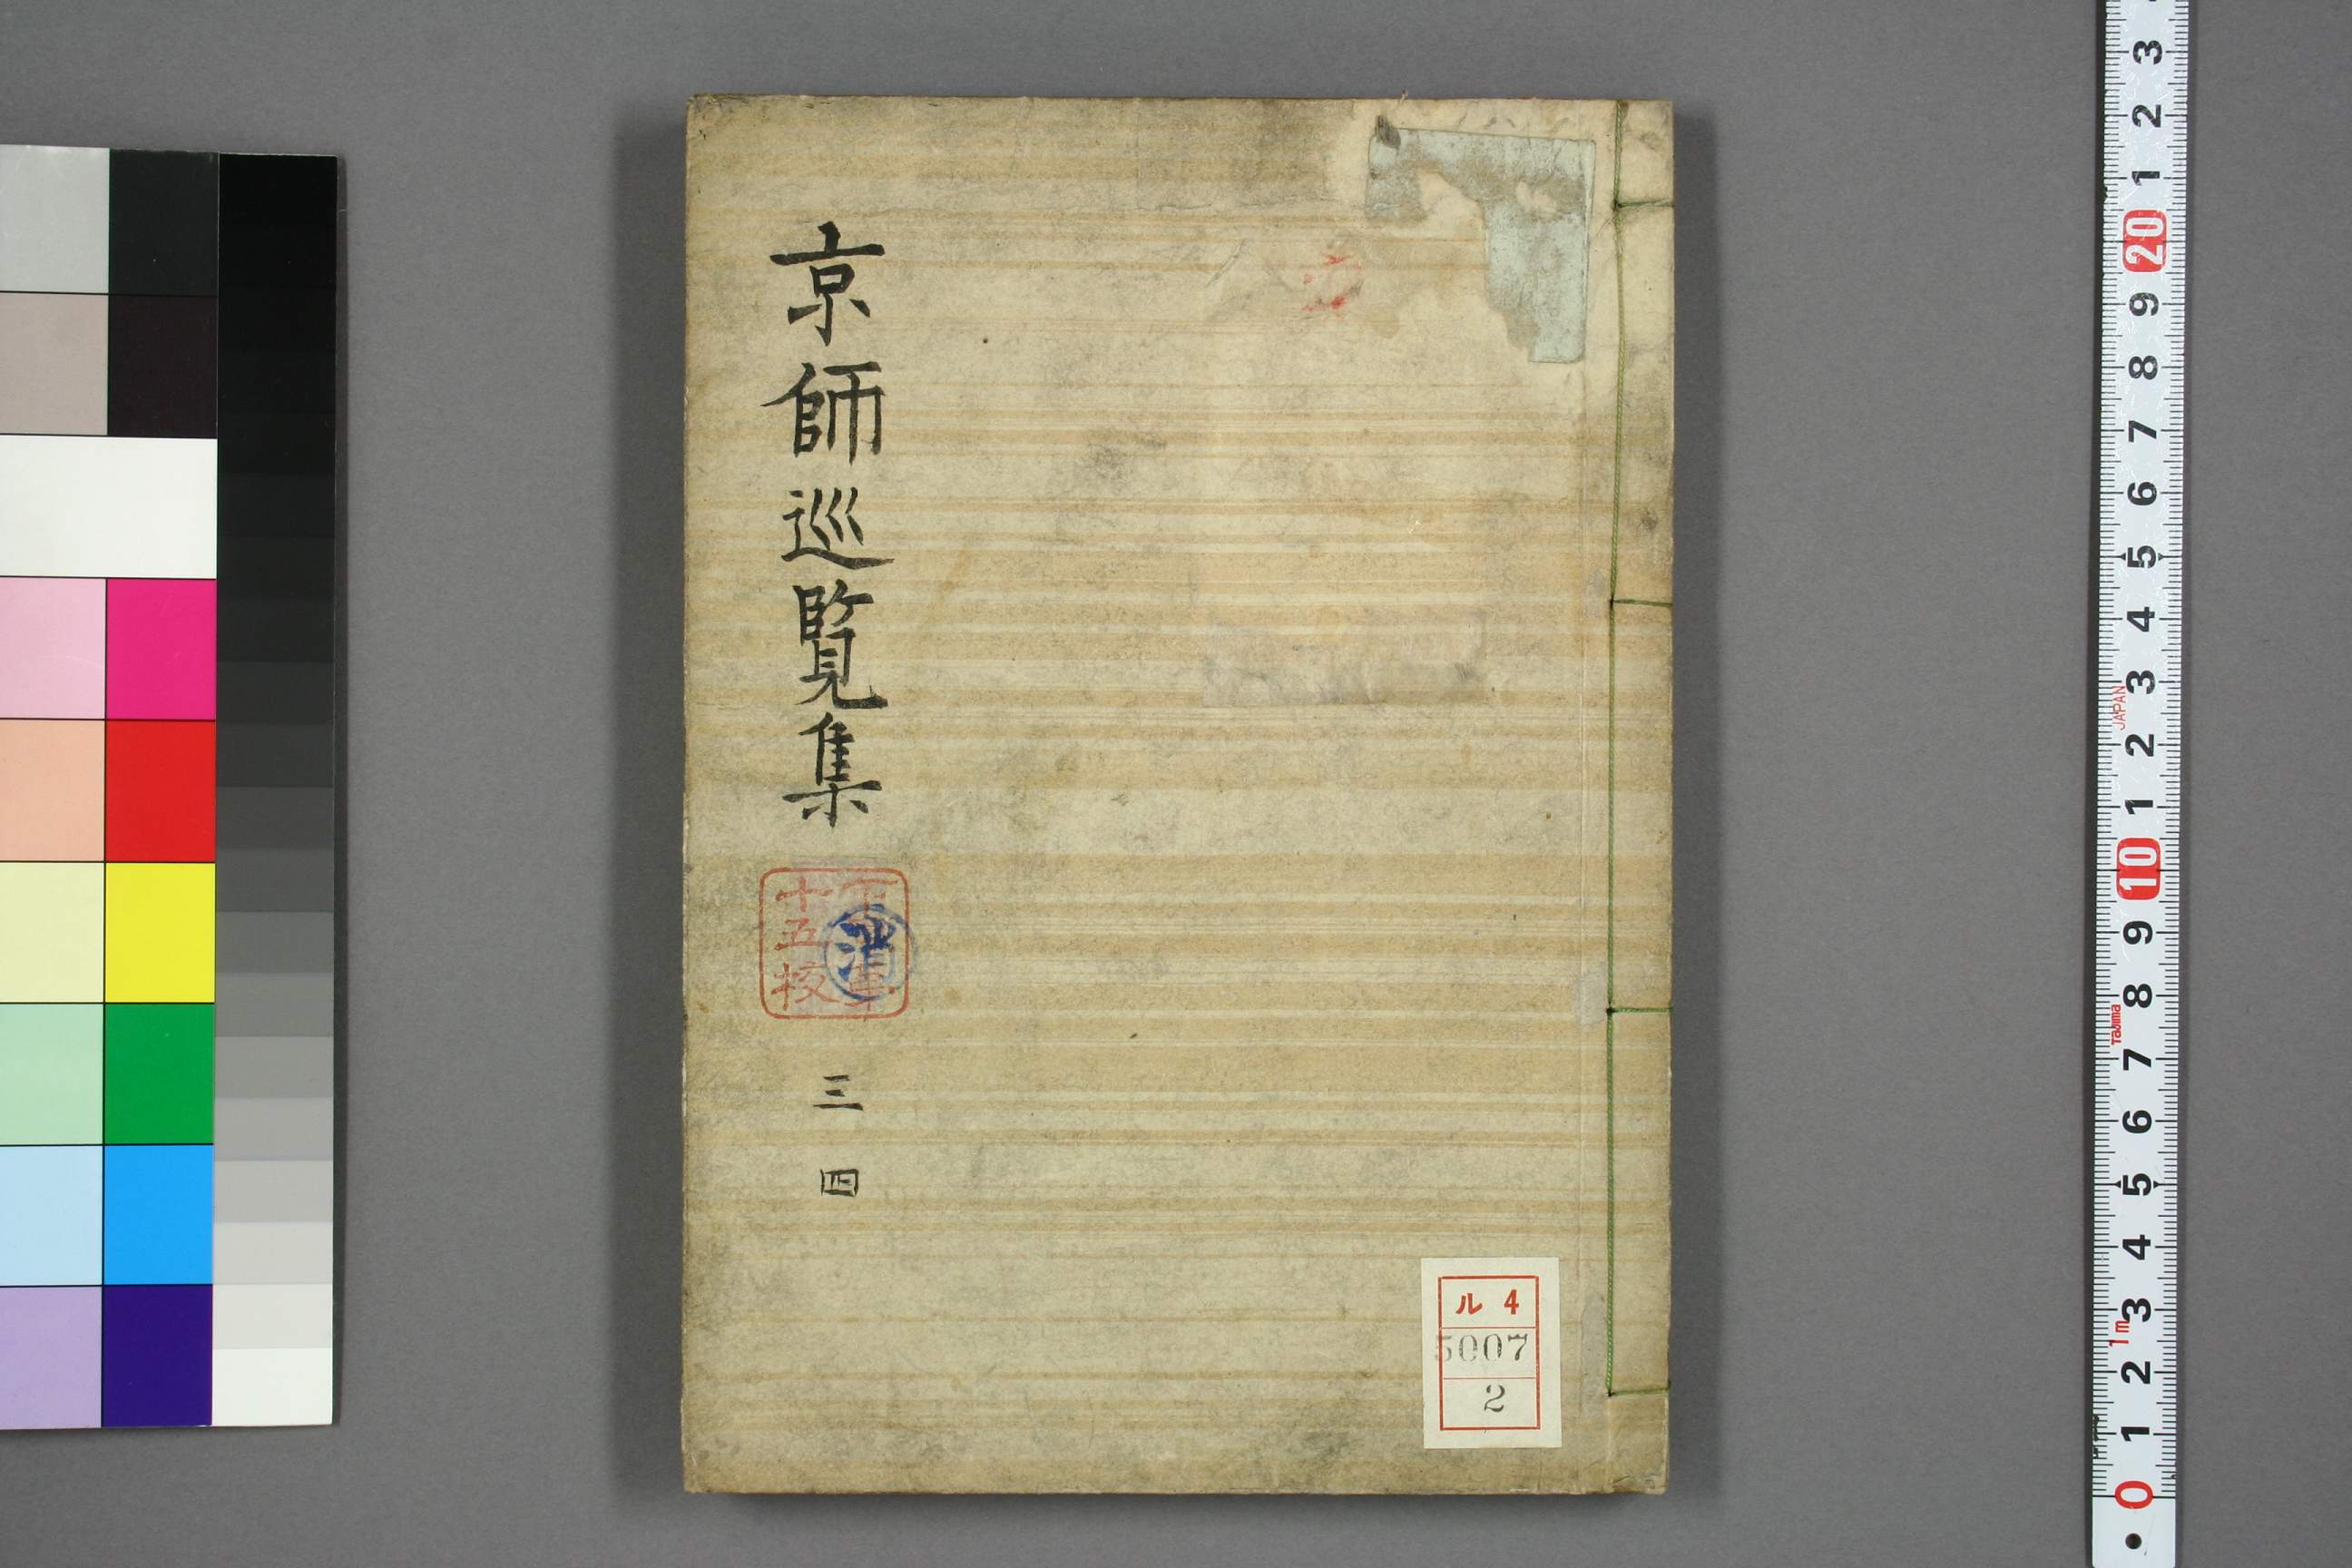 京師巡覧集
三
四
十五校
消
ル 4
5007
2
3
2
1
20
9
8
7
6
5
4
3
JAPAN
2
1
10
9
8
Tajima
7
6
5
4
3
1m
2
1
0